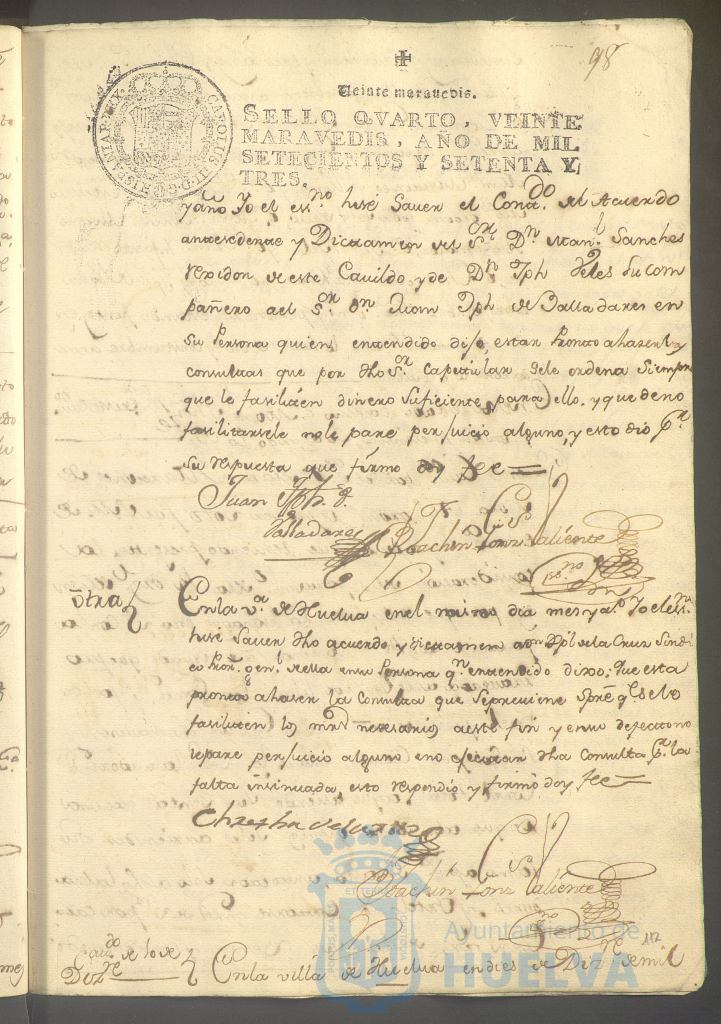 98
Veinte maravedis.
SELLO QVARTO, VEINTE
MARAVEDIS, AÑO DE MIL
SETECIENTOS Y SETENTA Y
TRES.
CAROLUS III D. G. HISPANIAR. REX
y año Yo el essno hisé Saver el Contdo del Acuerdo
antesedente y Dictamen del Sor Dn Manl Sanches
rexidor de este Cavildo, y de Dn Jph Veles su com
pañero a el Sor Dn Juan Jph de Balladares en
su Persona quien entendido dijo, estar pronto a haser las
consultas que por dho Sor Capitular se le ordena siempre
que le fasiliten dinero suficiente para ello, y que de no
fasilitarsele no le pare perjuicio alguno, y esto dio pr
su respuesta que firmo doy fee =
Juan Jph. d.
Valladares
Joachin Gonz Valiente
essno
Otra
En la va de Huelva en el mismo dia mes y año Yo el essno
hisé Saver dho acuerdo y dictamen a Dn de la Cruz Sindi
co Pror genl de ella en su Persona qn entendido dixo: Que esta
pronto a haser la Consulta que se previene spre qe se le
fasiliten los mrs nesesarios a este fin y en su defecto no
le pare perjuicio alguno en no ejecutar dha Consulta pr la
falta insinuada, esto respondio y firmó doy fee =
Joachin Gonz Valiente
essno
112
Cavdo de 10 de
Dizre
En la villa de Huelva en dies de Dizre de mil
Ayuntamiento de
HUELVA